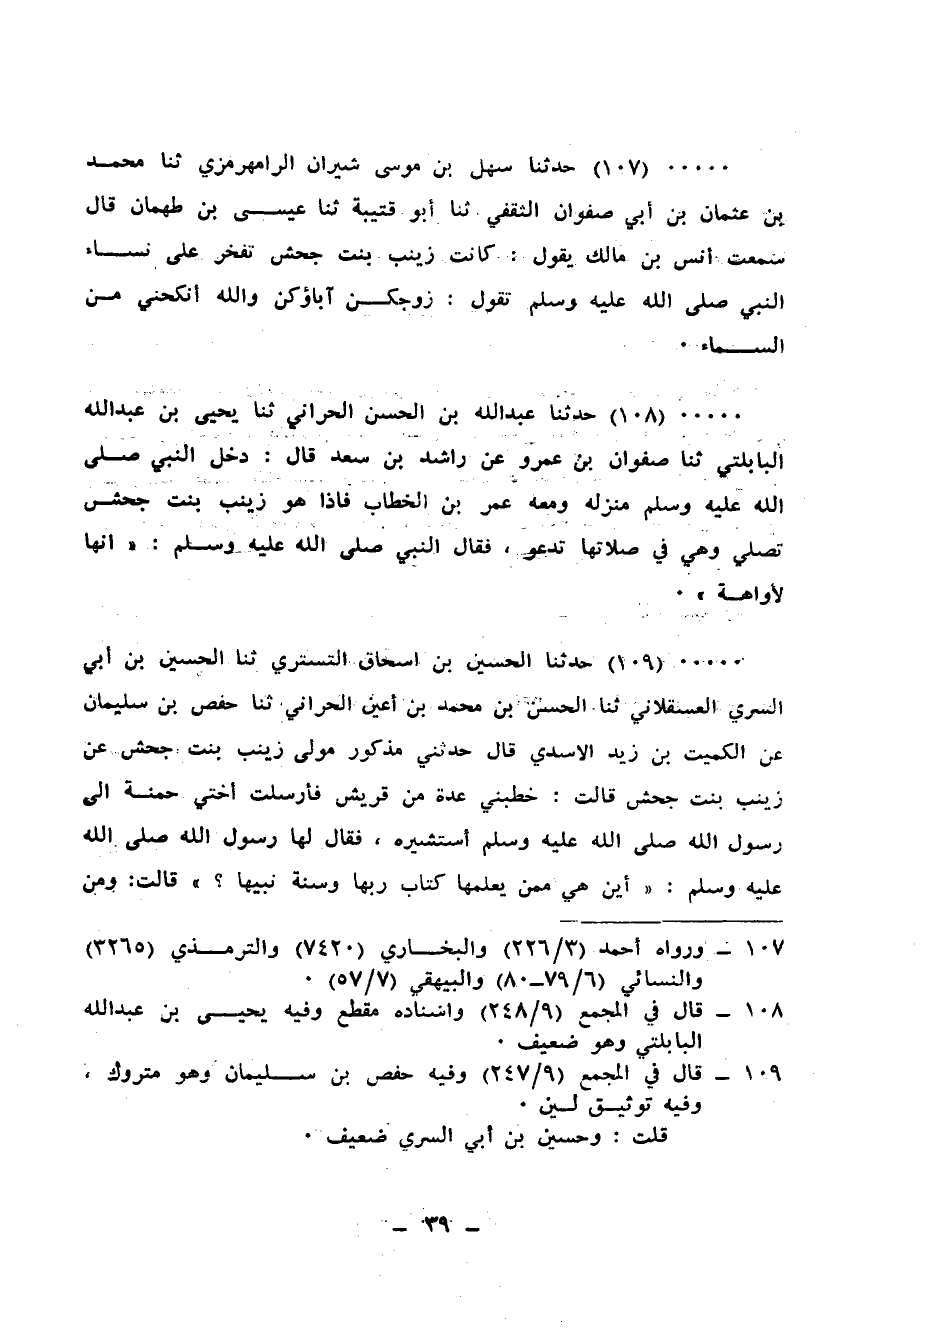 ..... (١٠٧) حدثنا سهل بن موسى شيران الرامهرمزي ثنا محمد
بن عثمان بن أبي صفوان الثقفي ثنا أبو قتيبة ثنا عيسى بن طهمان قال
سمعت أنس بن مالك يقول : كانت زينب بنت جحش تفخر على نساء
النبي صلى الله عليه وسلم تقول : زوجكن آباؤكن والله أنكحني من
السماء .
..... (١٠٨) حدثنا عبدالله بن الحسن الحراني ثنا يحيى بن عبدالله
البابلتي ثنا صفوان بن عمرو عن راشد بن سعد قال : دخل النبي صلى
الله عليه وسلم منزله ومعه عمر بن الخطاب فاذا هو زينب بنت جحش
تصلي وهي في صلاتها تدعو ، فقال النبي صلى الله عليه وسلم : « انها
لأواهة » .
..... (١٠٩) حدثنا الحسين بن اسحاق التستري ثنا الحسين بن أبي
السري العسقلاني ثنا الحسن بن محمد بن أعين الحراني ثنا حفص بن سليمان
عن الكميت بن زيد الاسدي قال حدثني مذكور مولى زينب بنت جحش عن
زينب بنت جحش قالت : خطبني عدة من قريش فأرسلت أختي حمنة الى
رسول الله صلى الله عليه وسلم أستشيره ، فقال لها رسول الله صلى الله
عليه وسلم : « أين هي ممن يعلمها كتاب ربها وسنة نبيها ؟ » قالت: ومن
١٠٧ ــ ورواه أحمد (٢٢٦/٣) والبخاري (٧٤٢٠) والترمذي (٣٢٦٥)
والنسائي (٧٩/٦ــ٨٠) والبيهقي (٥٧/٧) .
١٠٨ ــ قال في المجمع (٢٤٨/٩) واسناده مقطع وفيه يحيى بن عبدالله
البابلتي وهو ضعيف .
١٠٩ ــ قال في المجمع (٢٤٧/٩) وفيه حفص بن سليمان وهو متروك ،
وفيه توثيق لين .
قلت : وحسين بن أبي السري ضعيف .
ــ ٣٩ ــ